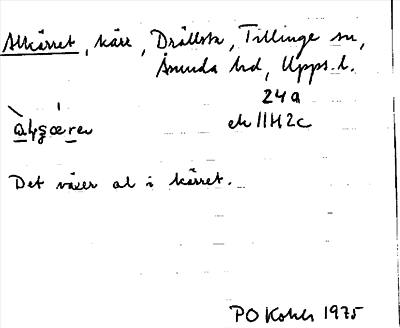 Alkärret, kärr, Drällsta, Tillinge sn,
Åsunda hd, Upps. l.
24a
ek 11H2c
Det växer al i kärret.
PO 1975